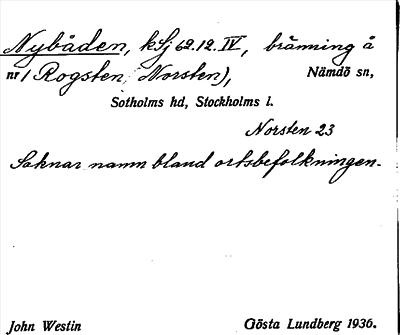 Nybåden, kSj 62.12. IV, bränning å
nr 1 Rogsten, Norsten), Nämdö sn,
Sotholms hd, Stockholms l.
Norsten 23
Saknar namn bland ortsbefolkningen.
John Westin Gösta Lundberg 1936.